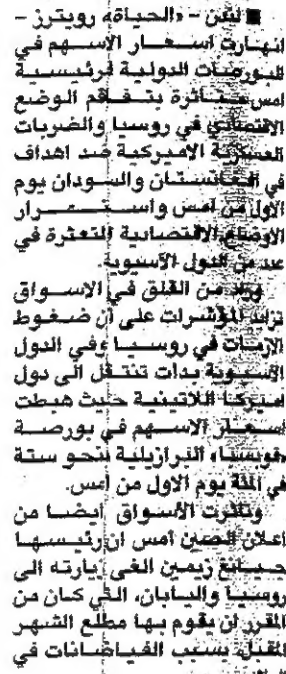 ■ لندن - «الحياة»، رويترز -
انهارت اسعار الاسهم في
البورصات الدولية الرئيسية
امس متأثرة بتفاقم الوضع
الاقتصادي في روسيا والضربات
العسكرية الاميركية ضد اهداف
في افغانستان والسودان يوم
الاول من امس واستمرار
الاوضاع الاقتصادية المتعثرة في
عدد من الدول الآسيوية.
وزاد من القلق في الاسواق
تزايد المؤشرات على أن ضغوط
الازمات في روسيا وفي الدول
الآسيوية بدأت تنتقل الى دول
اميركا اللاتينية حيث هبطت
اسعار الاسهم في بورصة
«بوفيسبا» البرازيلية بنحو ستة
في المئة يوم الاول من امس.
وتأثرت الأسواق ايضا من
اعلان الصين امس ان رئيسها
جيانغ زيمين الغى زيارته الى
روسيا واليابان، التي كان من
المقرر ان يقوم بها مطلع الشهر
المقبل بسبب الفياضانات في